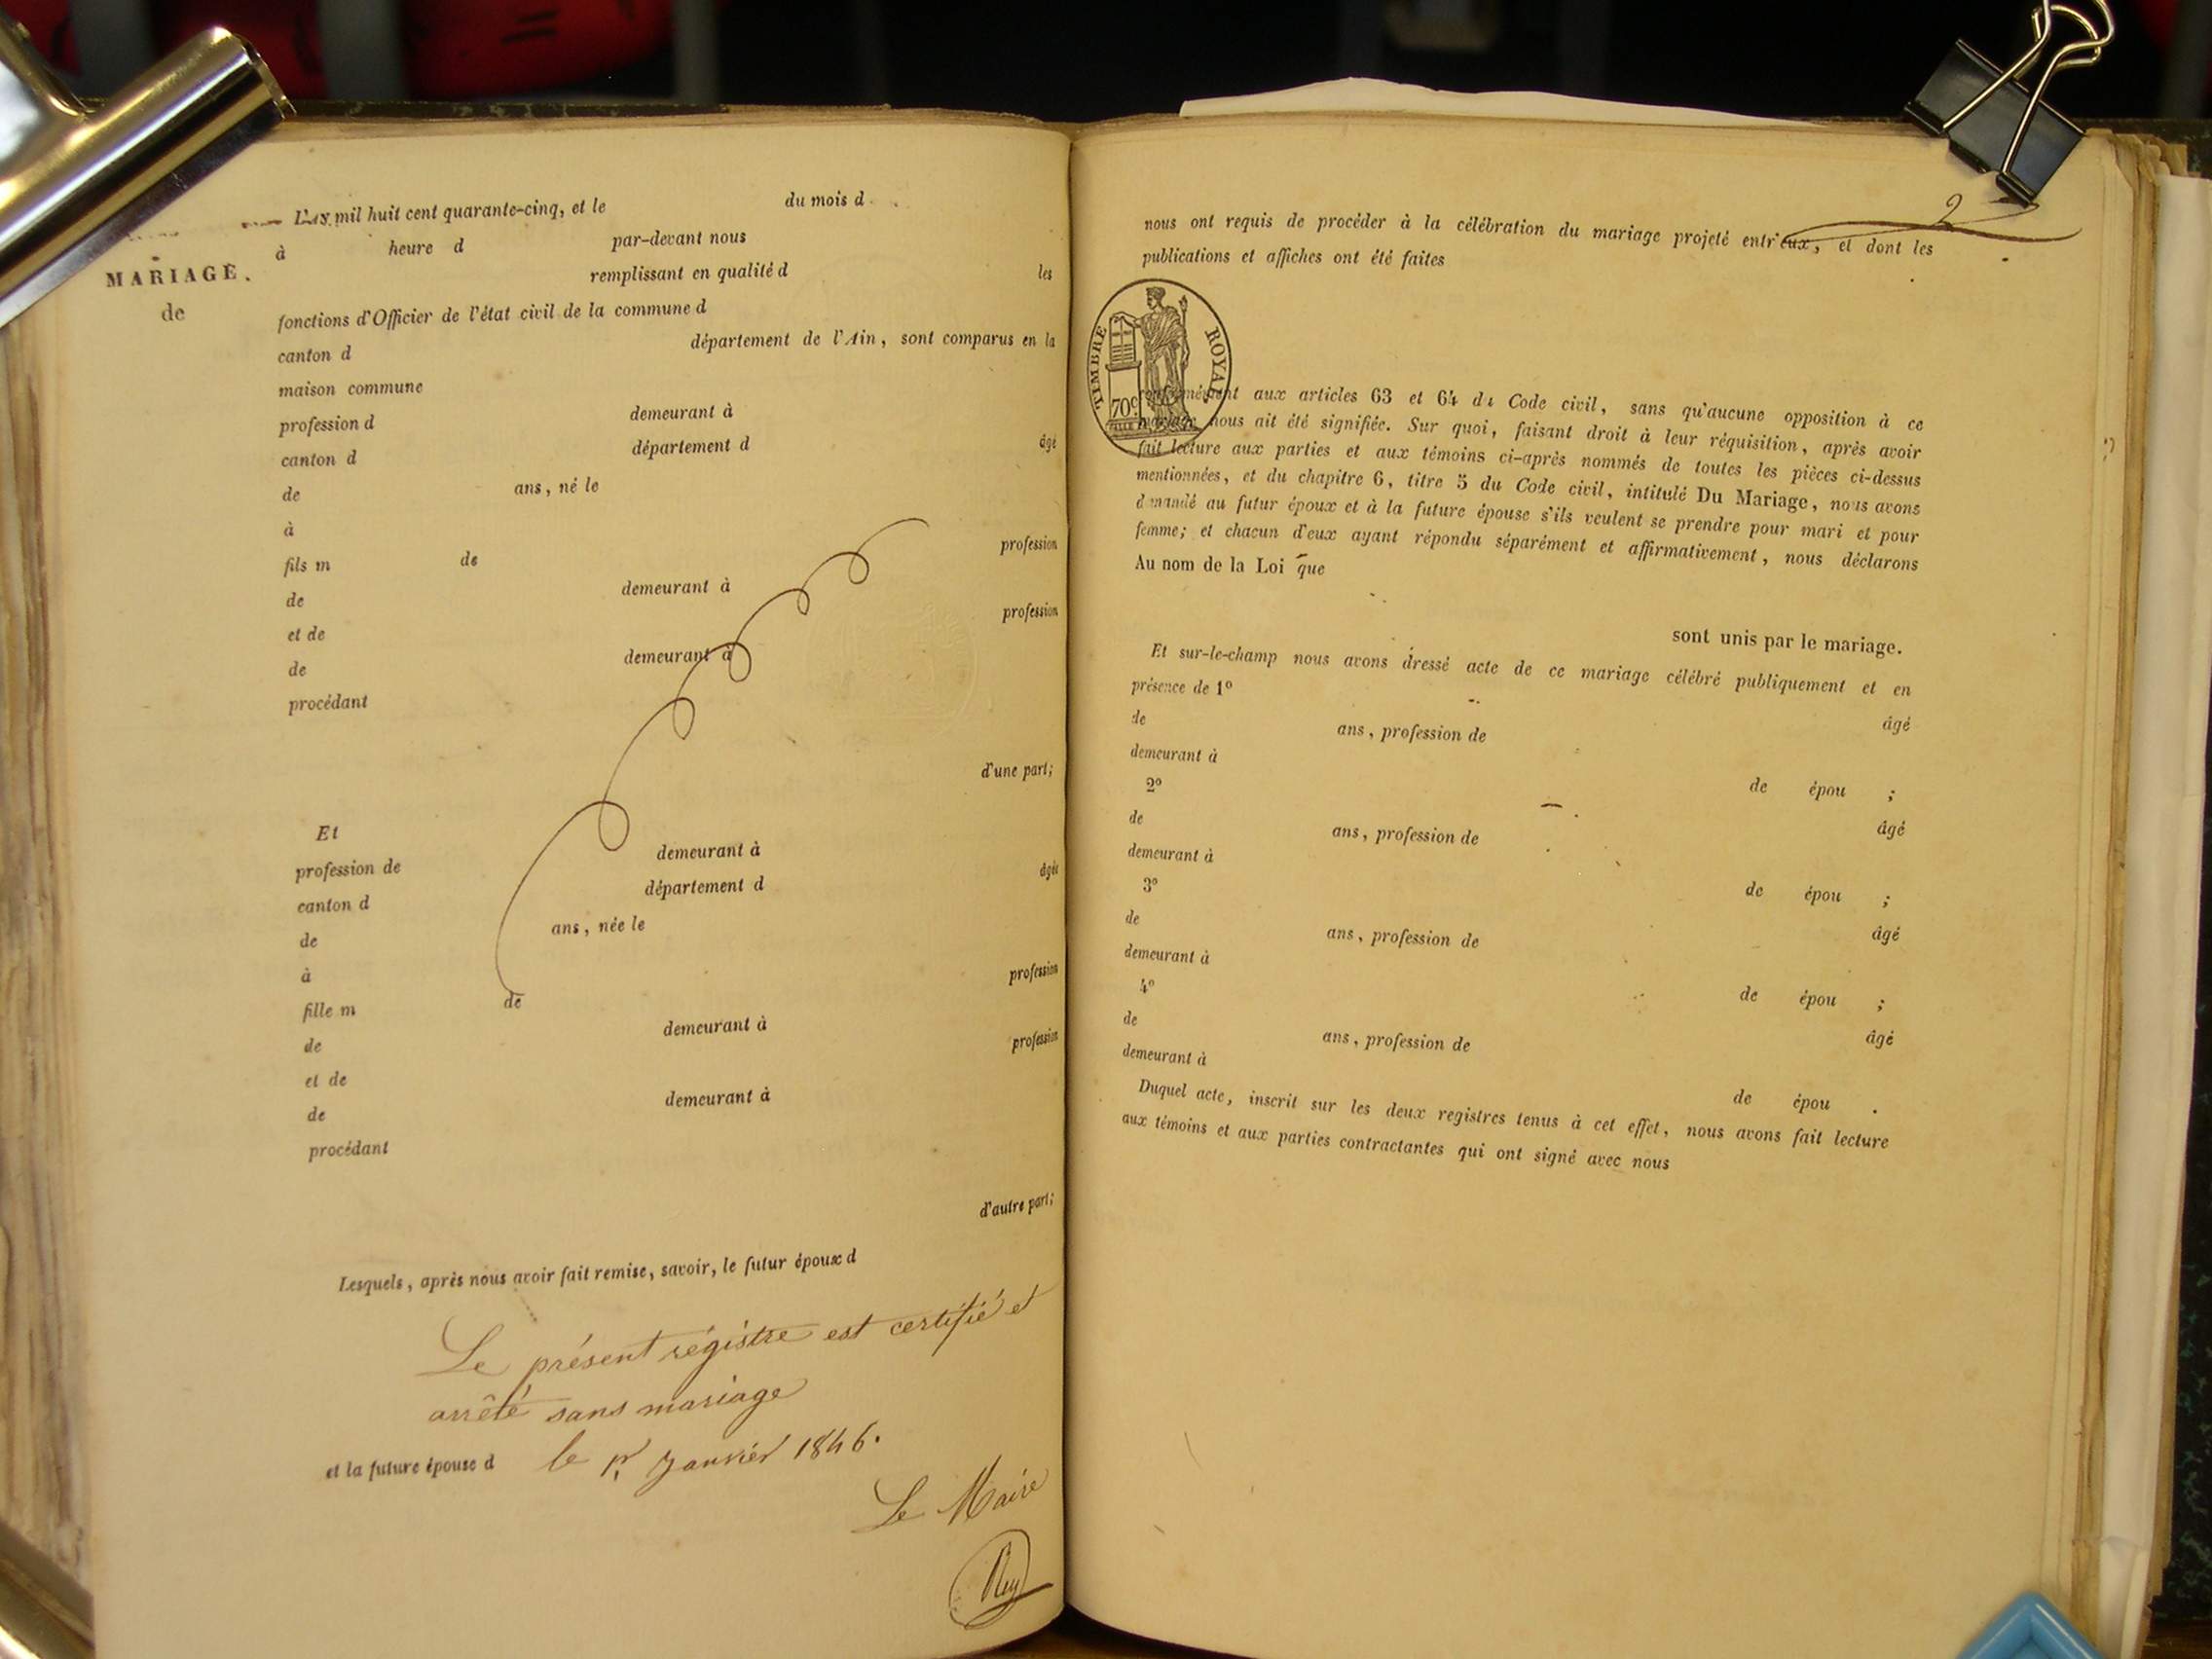 L'AN mil huit cent quarante-cinq, et le du mois d
à heure d par-devant nous
MARIAGE.
de
remplissant en qualité d les
fonctions d'Officier de l'état civil de la commune d
canton d département de l'Ain, sont comparus en la
maison commune
profession d demeurant à
canton d département d âgé
de ans, né le
à
fils m de profession
de demeurant à
et de profession
de demeurant à
procédant
d'une part;
Et
profession de demeurant à
canton d département d âgée
de ans, née le
à
fille m de profession
de demeurant à
et de profession
de demeurant à
procédant
d'autre part;
Lesquels, après nous avoir fait remise, savoir, le futur époux d
Le présent régistre est certifié et
arrêté sans mariage
et la future épouse d le pr Janvier 1846.
Le Maire
Rey
2
nous ont requis de procéder à la célébration du mariage projeté entr'eux, et dont les
publications et affiches ont été faites
TIMBRE ROYAL
70c
conformément aux articles 63 et 64 du Code civil, sans qu'aucune opposition à ce
mariage nous ait été signifiée. Sur quoi, faisant droit à leur réquisition, après avoir
fait lecture aux parties et aux témoins ci-après nommés de toutes les pièces ci-dessus
mentionnées, et du chapitre 6, titre 5 du Code civil, intitulé Du Mariage, nous avons
demandé au futur époux et à la future épouse s'ils veulent se prendre pour mari et pour
femme; et chacun d'eux ayant répondu séparément et affirmativement, nous déclarons
Au nom de la Loi que
sont unis par le mariage.
Et sur-le-champ nous avons dressé acte de ce mariage célébré publiquement et en
présence de 1º
de ans, profession de âgé
demeurant à
de épou ;
2º
de ans, profession de âgé
demeurant à
de épou ;
3º
de ans, profession de âgé
demeurant à
de épou ;
4º
de ans, profession de âgé
demeurant à
de épou .
Duquel acte, inscrit sur les deux registres tenus à cet effet, nous avons fait lecture
aux témoins et aux parties contractantes qui ont signé avec nous